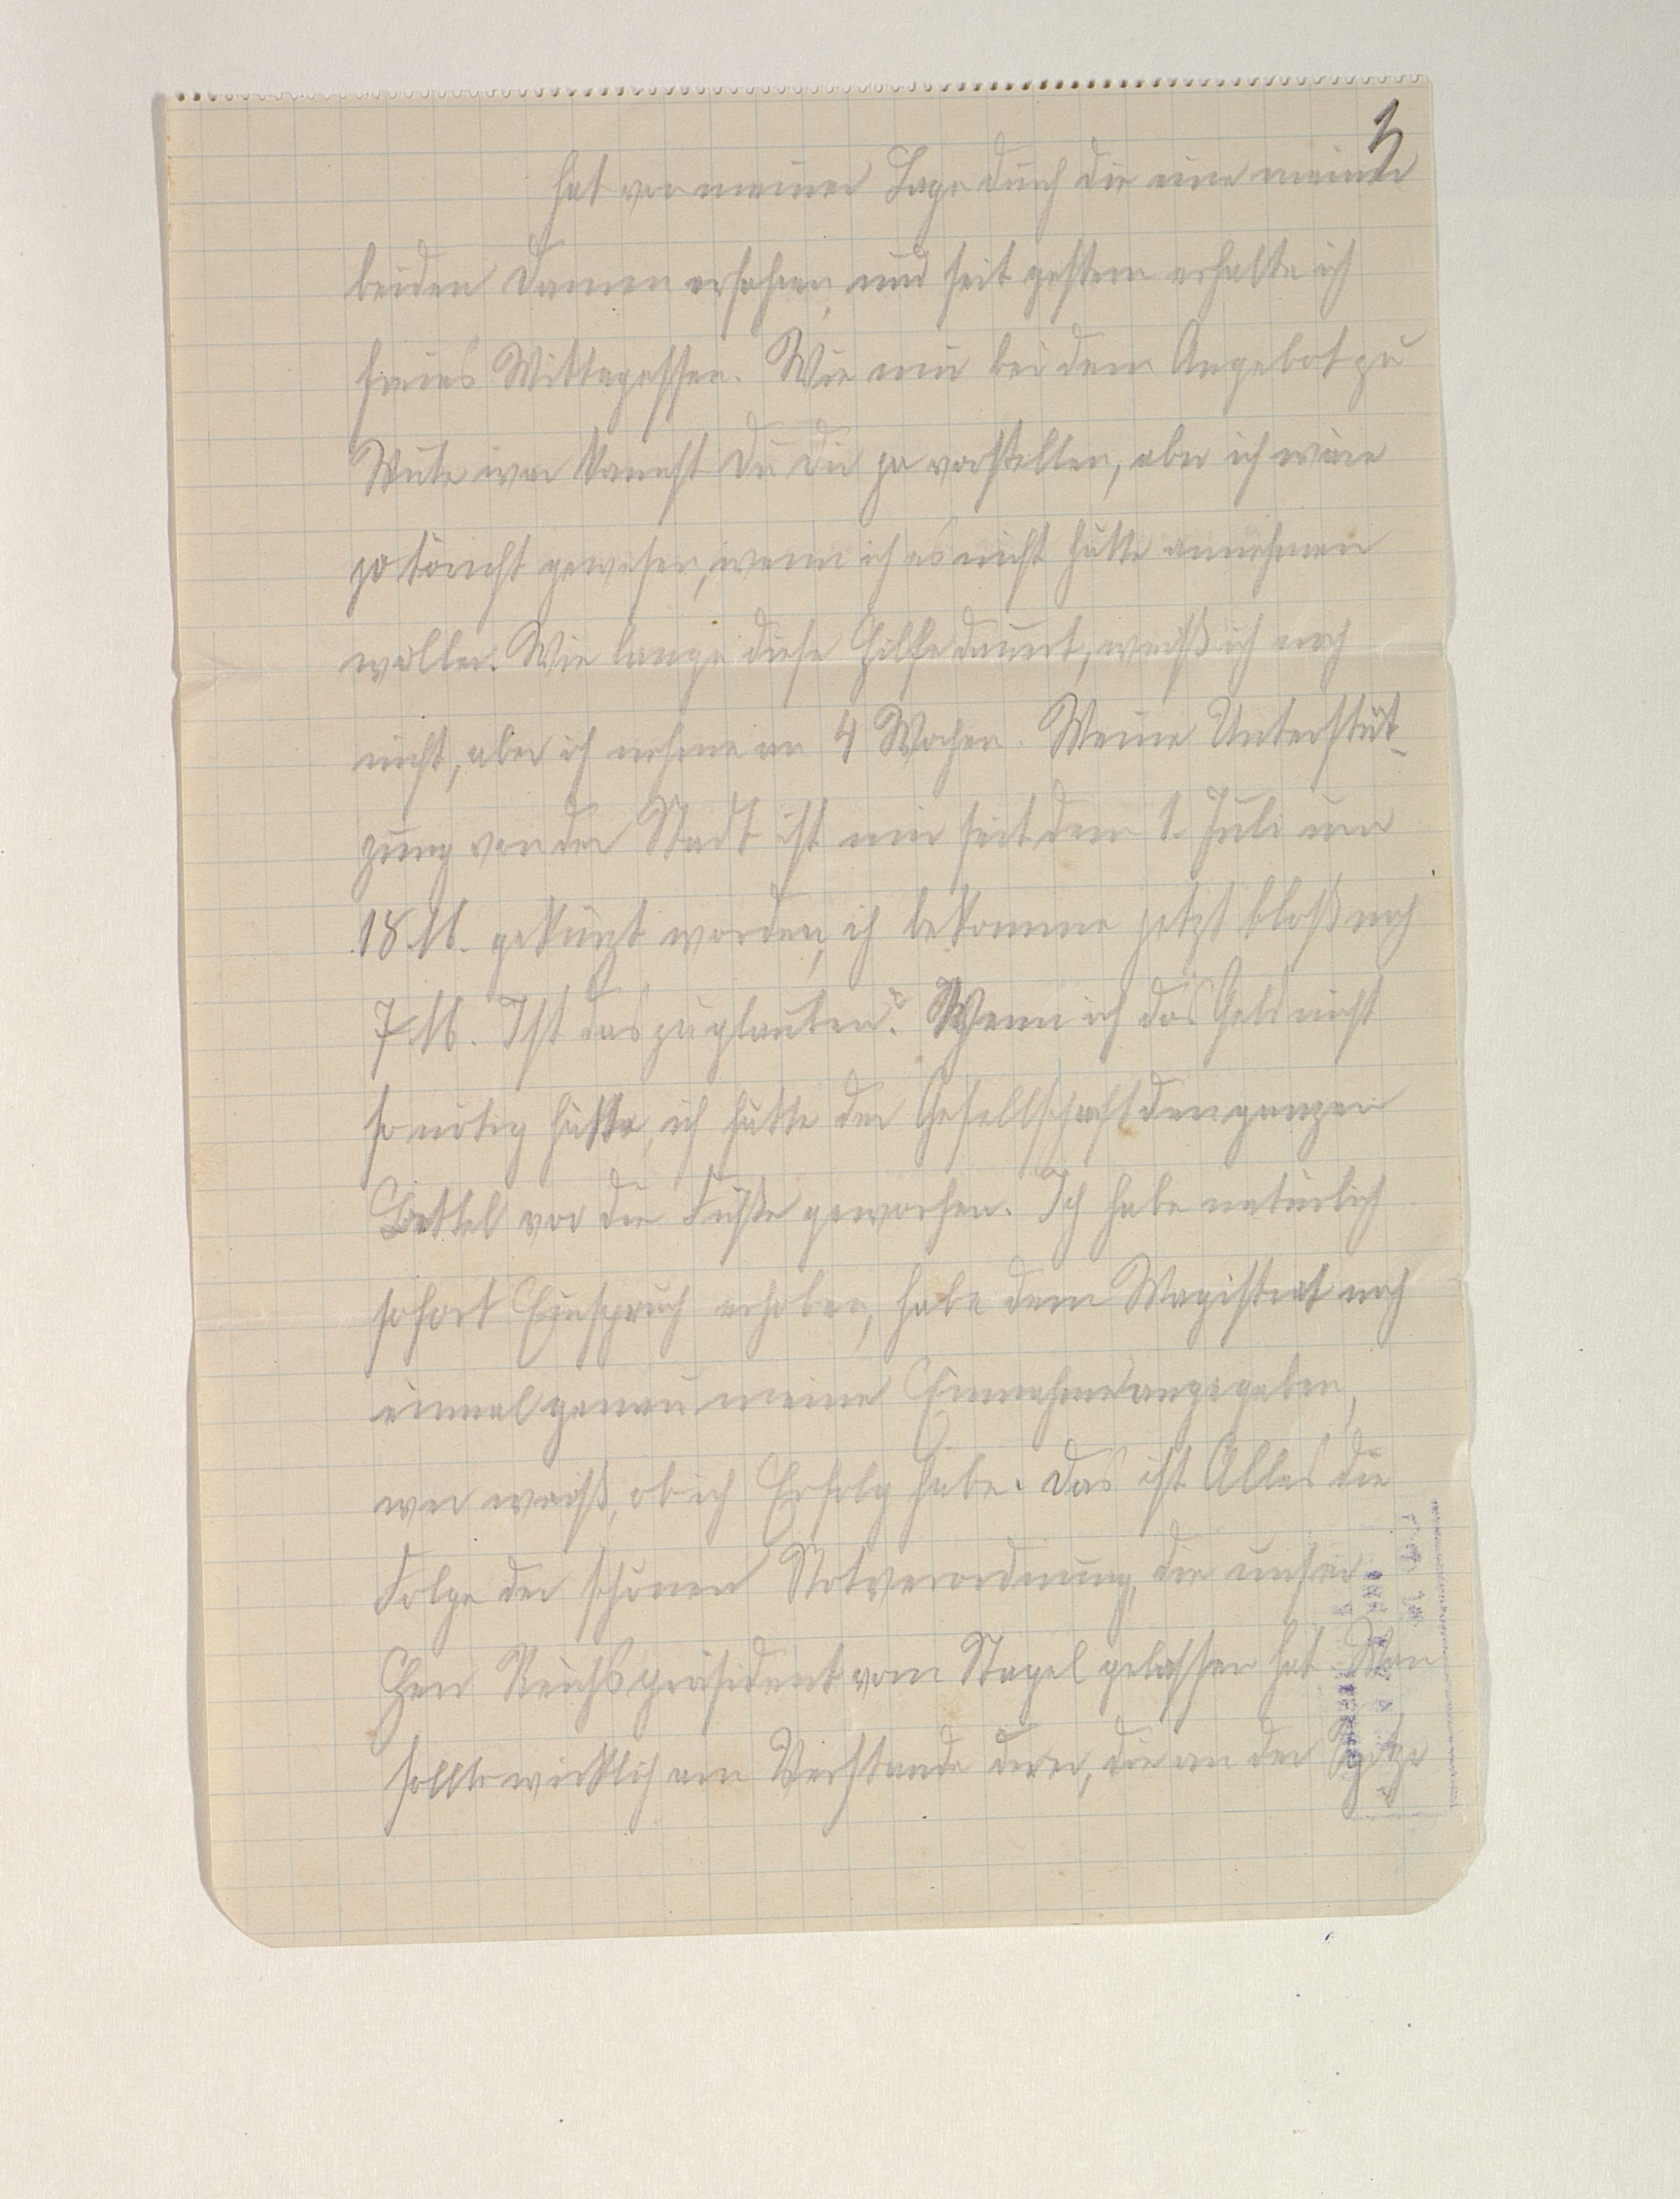 3
hat von meiner Lage durch die eine meiner
beiden Damen erfahren, und seit gestern erhalte ich
freies Mittagessen. Wie mir bei dem Angebot zu
Mute war kannst Du Dir ja vorstellen, aber ich wäre
ja töricht gewesen, wenn ich es nicht hätte annehmen
wollen. Wie lange diese Hilfe dauert, weiß ich noch
nicht, aber ich nehme an 4 Wochen. Meine Unterstüt-
zung von der Stadt ist mir seit dem 1. Juli um
18 M. gekürzt worden, ich bekomme jetzt bloß noch
7 M. Ist das zu glauben? Wenn ich das Geld nicht
so nötig hätte, ich hätte der Gesellschaft den ganzen
Bettel vor die Füße geworfen. Ich habe natürlich
sofort Einspruch erhoben, habe dem Magistrat noch
einmal genau meine Einnahme angegeben,
wer weiß, ob ich Erfolg habe. Das ist Alles die
Folge der schönen Notverordnung, die unser
Herr Reichspräsident vom Stapel gelassen hat. Man
sollte wirklich am Verstande derer, die an der Spitze